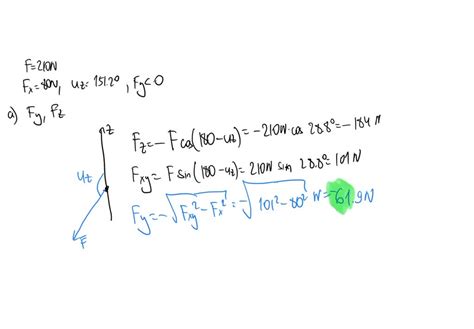 F=210N
Fx=80N, uz=151.2°, Fy<0
a) Fy, Fz
z
uz
F
Fz=-Fcos(180-uz)=-210N·cos 28.8°=-184N
Fxy=Fsin(180-uz)=210N sin 28.8°=101N
Fy=-√Fxy²-Fx²=-√101²-80² N=-61.9N